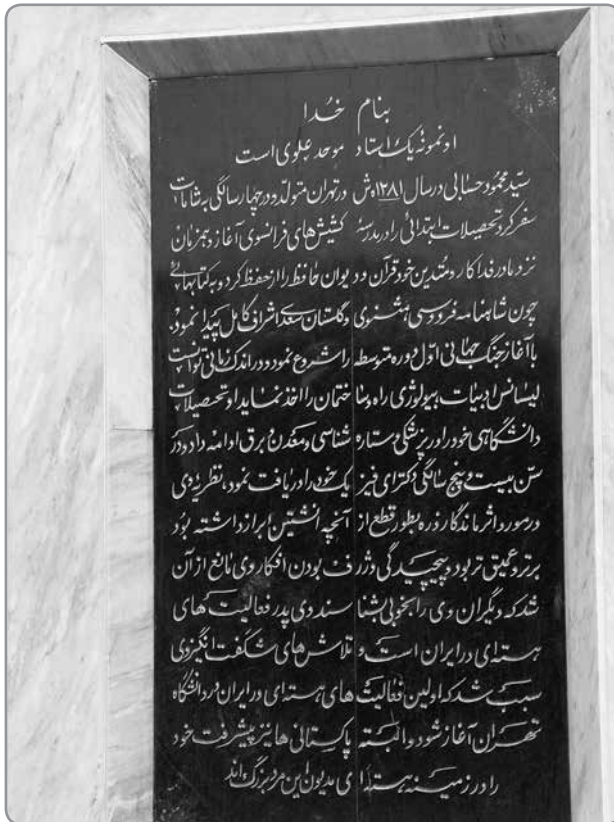 بنام خدا
او نمونه یک استاد موحد علوی است
سید محمود حسابی در سال ۱۲۸۱ ه ش در تهران متولد و در چهار سالگی به شامات
سفر کرد تحصیلات ابتدائی را در مدرسه کشیش های فرانسوی آغاز و همزمان
نزد مادر فداکار و متدین خود قرآن و دیوان حافظ را از حفظ کرد و به کتابهائی
چون شاهنامه فردوسی مثنوی و گلستان سعدی اشراف کامل پیدا نمود.
با آغاز جنگ جهانی اول دوره متوسطه را شروع نمود و در اندک زمانی توانست
لیسانس ادبیات بیولوژی راه و ساختمان را اخذ نماید او تحصیلات
دانشگاهی خود را در پزشکی و ستاره شناسی و معدن و برق ادامه داد و در
سن بیست و پنج سالگی دکترای فیزیک خود را دریافت نمود، نظریه وی
در مورد اثر ماندگار ذره بطور قطع از آنچه انشتین ابراز داشته بود
برتر و عمیق تر بود و پیچیدگی و ژرف بودن افکار وی مانع از آن
شد که دیگران وی را بخوبی بشناسند وی پدر فعالیت های
هسته ای در ایران است و تلاش های شگفت انگیز وی
سبب شد که اولین فعالیت های هسته ای در ایران در دانشگاه
تهران آغاز شود و البته پاکستانی ها نیز پیشرفت خود
را در زمینه هسته ای مدیون این مرد بزرگ اند